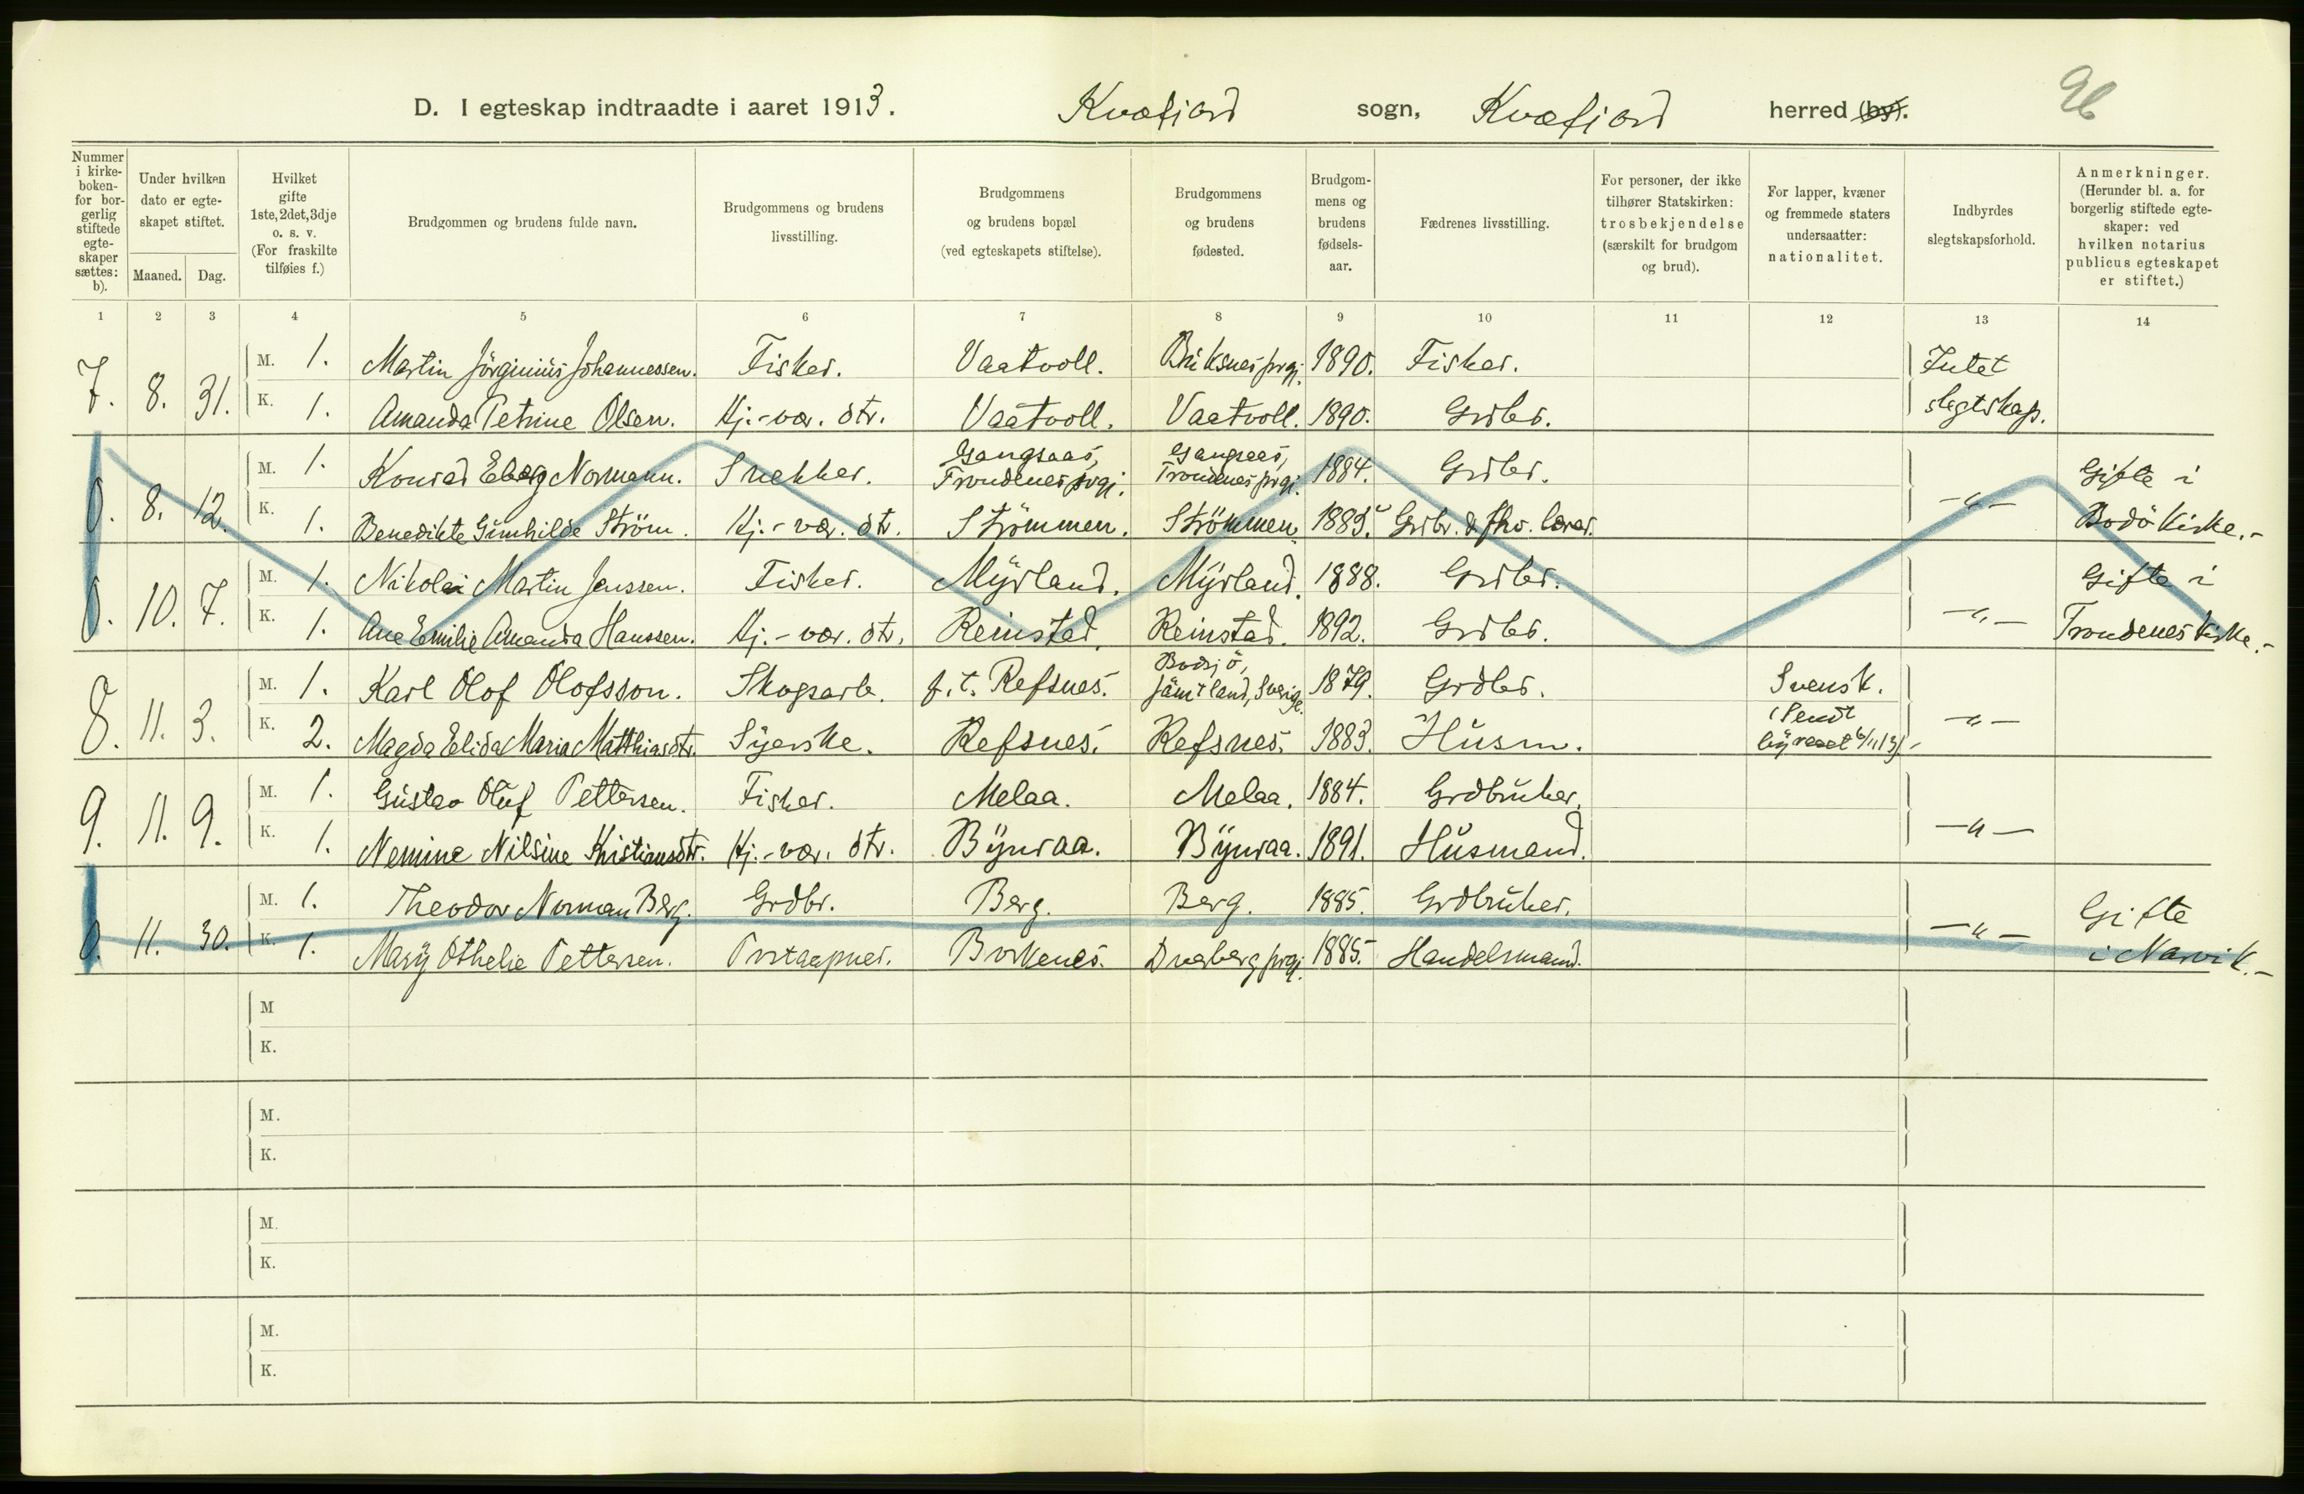 D. I egteskap indtraadte i aaret 1913. Kvæfjord sogn, Kvæfjord herred (by). 96
Nummer i kirke-boken- for bor-gerlig stiftede egte-skaper sættes: b).
Under hvilken dato er egte-skapet stiftet.
Maaned. Dag.
Hvilket gifte 1ste, 2det, 3dje o. s. v. (For fraskilte tilføies f.)
Brudgommen og brudens fulde navn.
Brudgommens og brudens livsstilling.
Brudgommens og brudens bopæl (ved egteskapets stiftelse).
Brudgommens og brudens fødested.
Brudgom-mens og brudens fødsels-aar.
Fædrenes livsstilling.
For personer, der ikke tilhører Statskirken: trosbekjendelse (særskilt for brudgom og brud).
For lapper, kvæner og fremmede staters undersaatter: nationalitet.
Indbyrdes slegtskapsforhold.
Anmerkninger. (Herunder bl. a. for borgerlig stiftede egte-skaper: ved hvilken notarius publicus egteskapet er stiftet.)
1 2 3 4 5 6 7 8 9 10 11 12 13 14
7. 8. 31. M. 1. Martin Jörginius Johannessen. Fisker. Vaatvoll. Buksnes prgj. 1890. Fisker. Intet
K. 1. Amanda Petrine Olsen. Hj.-vær. dtr. Vaatvoll. Vaatvoll. 1890. Grdbr. slegtskap.
0. 8. 12. M. 1. Konrad Eberg Normann. Snekker. Gangsaas, Trondenes prgj. Gangsaas, Trondenes prgj. 1884. Grdbr. Gifte i
K. 1. Benedikte Gunhilde Ström. Hj.-vær. dtr. Strömmen. Strömmen. 1885. Grdbr. & fhv. lærer. -"- Bodö kirke.-
0. 10. 7. M. 1. Nikolai Martin Jenssen. Fisker. Myrland. Myrland. 1888. Grdbr. Gifte i
K. 1. Ane Emilie Amanda Hanssen. Hj.-vær. dtr. Reinstad. Reinstad. 1892. Grdbr. -"- Trondenes kirke.-
8. 11. 3. M. 1. Karl Olof Olofsson. Skogsarb. f. t. Refsnes. Bodsjö, Jämtland, Sverige. 1879. Grdbr. Svensk.
K. 2. Magda Elida Maria Matthiasdtr. Syerske. Refsnes. Refsnes. 1883. Husm. (Sendt byraaet 6/11 13).- -"-
9. 11. 9. M. 1. Gustav Oluf Pettersen. Fisker. Melaa. Melaa. 1884. Grdbruker.
K. 1. Nemine Nilsine Kristiansdtr. Hj.-vær. dtr. Bynraa. Bynraa. 1891. Husmand. -"-
0. 11. 30. M. 1. Theodor Norman Berg. Grdbr. Berg. Berg. 1885. Grdbruker. Gifte
K. 1. Mary Othelie Pettersen. Postaapner. Borkenes. Dverberg prgj. 1885. Handelsmand. -"- i Narvik.-
M
K.
M.
K.
M.
K.
M.
K.